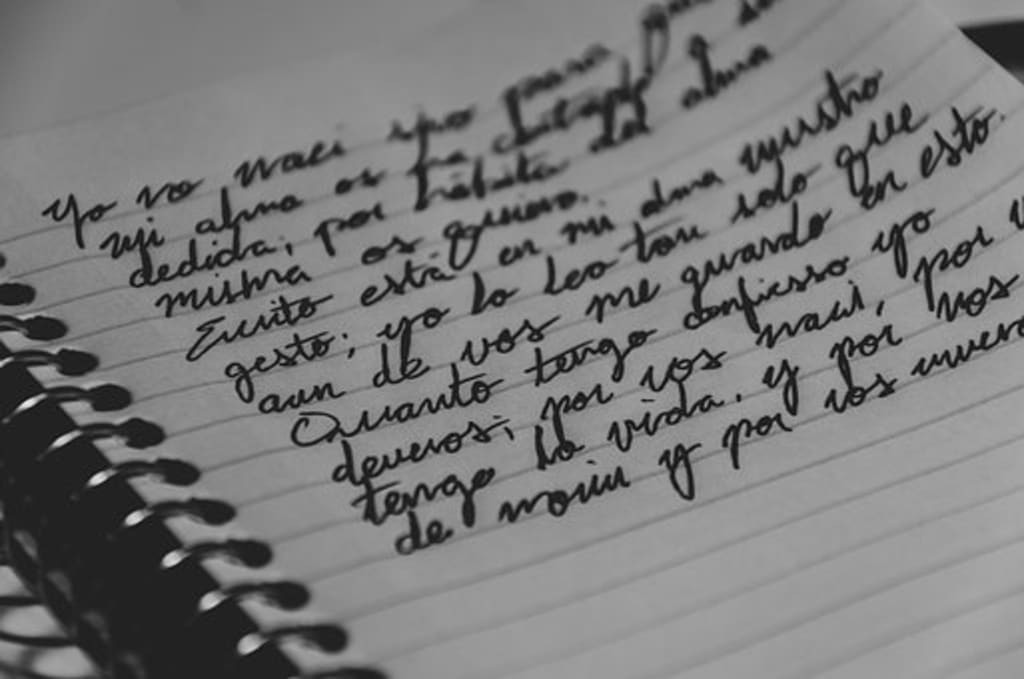 Yo no naci sino para
mi alma os ha
dedida; por hábito del alma
misma os quiero.
Escrito está en mi alma vuestro
gesto; yo lo leo tan solo que
aun de vos me guardo en esto.
Quanto tengo confiesso yo
deveros; por vos naci, por
tengo la vida, y por vos
de morir y por vos